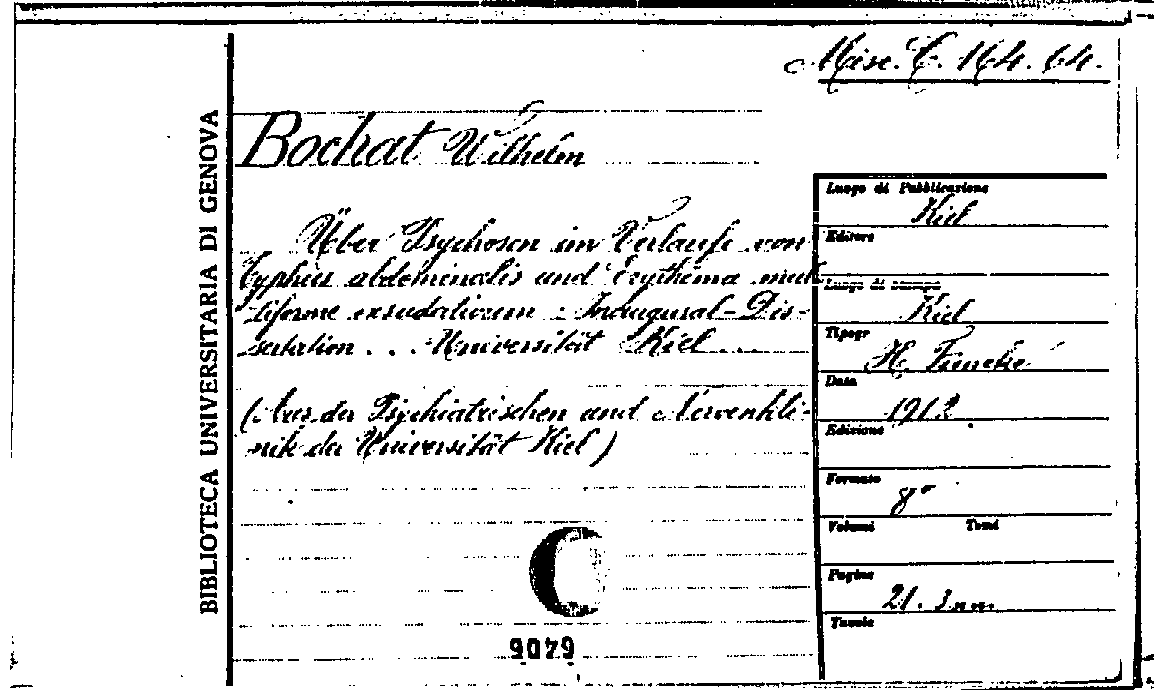 Misc. C. 164. 64.
BIBLIOTECA UNIVERSITARIA DI GENOVA
Bochat Wilhelm
Über Psychosen im Verlaufe von
Typhus abdominalis und Erythema mul-
tiforme exsudativum - Inaugural-Dis-
sertation . . . Universität Kiel
(Aus der Psychiatrischen und Nervenkli-
nik der Universität Kiel)
Luogo di Pubblicazione
Kiel
Editore
Luogo di stampa
Kiel
Tipogr
H. Fiencke
Data
1912
Edizione
Formato
8°
Volumi Tomi
Pagine
21. 3 nn.
Tavole